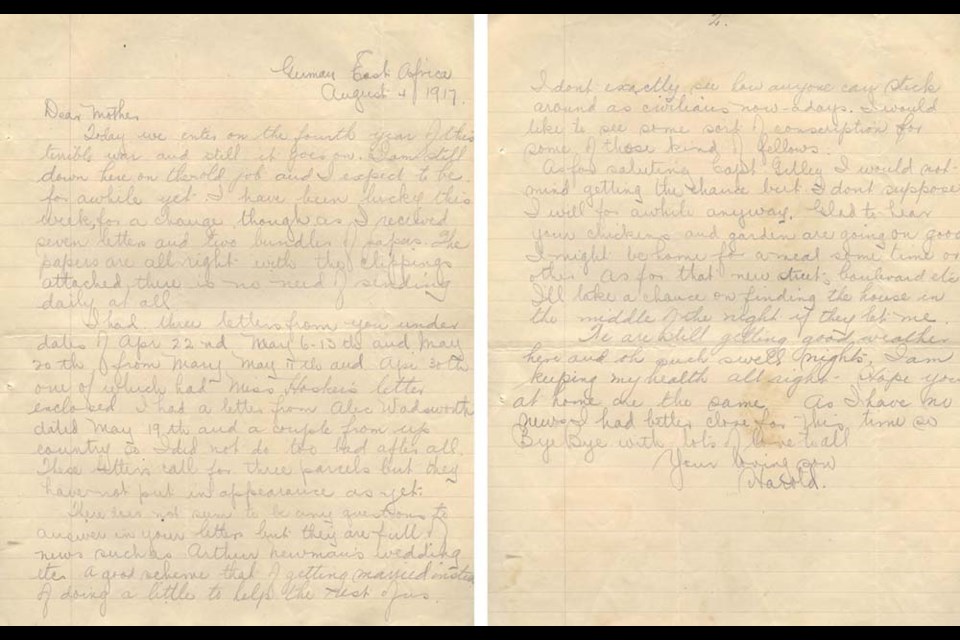 German East Africa
August 4/1917.
Dear Mother
Today we enter on the fourth year of this
terrible war and still it goes on. I am still
down here on the old job and I expect to be
for awhile yet. I have been lucky this
week, for a change though as I received
seven letters and two bundles of papers. The
papers are all right with the clippings
attached, there is no need of sending
daily at all.
I had three letters from you under
dates of Apr 22nd May 6-13th and May
20th & from Mary May th and Apr 30th
one of which had Miss Hosken's letter
enclosed. I had a letter from Alec Wadsworth
dated May 19th and a couple from up
country so I did not do too bad after all.
These letters call for three parcels but they
have not put in appearance as yet.
There does not seem to be any questions to
answer in your letters but they are full of
news such as Arthur Newman's wedding
etc. A good scheme that of getting married instead
of doing a little to help the rest of us.
2.
I dont exactly see how anyone can stick
around as civilians now-a-days. I would
like to see some sort of conscription for
some of those kind of fellows.
As for saluting Capt. Gilley I would not
mind getting the chance but I dont suppose
I will for awhile anyway. Glad to hear
your chickens and garden are going on good
I might be home for a meal some time or
other. As for that new street, boulevard etc
I'll take a chance on finding the house in
the middle of the night if they let me.
We are still getting good weather
here and oh such swell nights. I am
keeping my health all right. Hope you
at home are the same. As I have no
news I had better close for this time so
Bye Bye with lots of love to all
Your loving son
Harold.